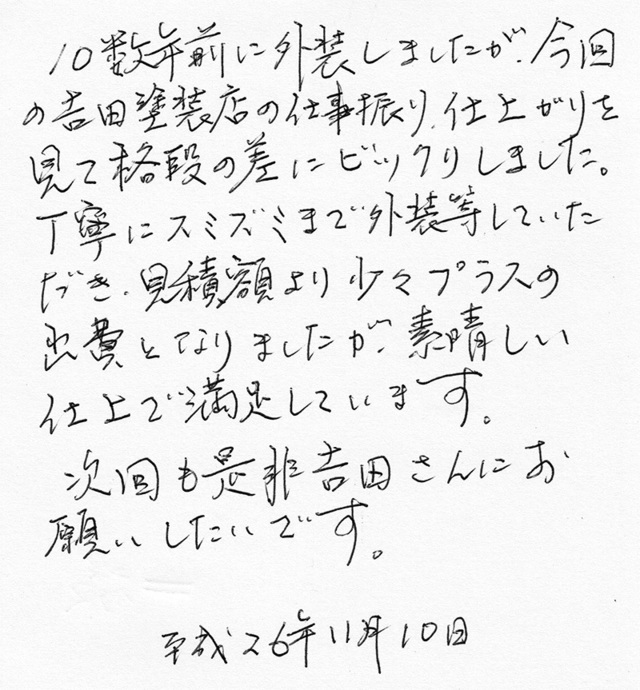 10数年前に外装しましたが、今回
の吉田塗装店の仕事振り、仕上がりを
見て格段の差にビックリしました。
丁寧にスミズミまで外装等していた
だき、見積額より少々プラスの
出費となりましたが、素晴しい
仕上で満足しています。
次回も是非吉田さんにお
願いしたいです。
平成26年11月10日